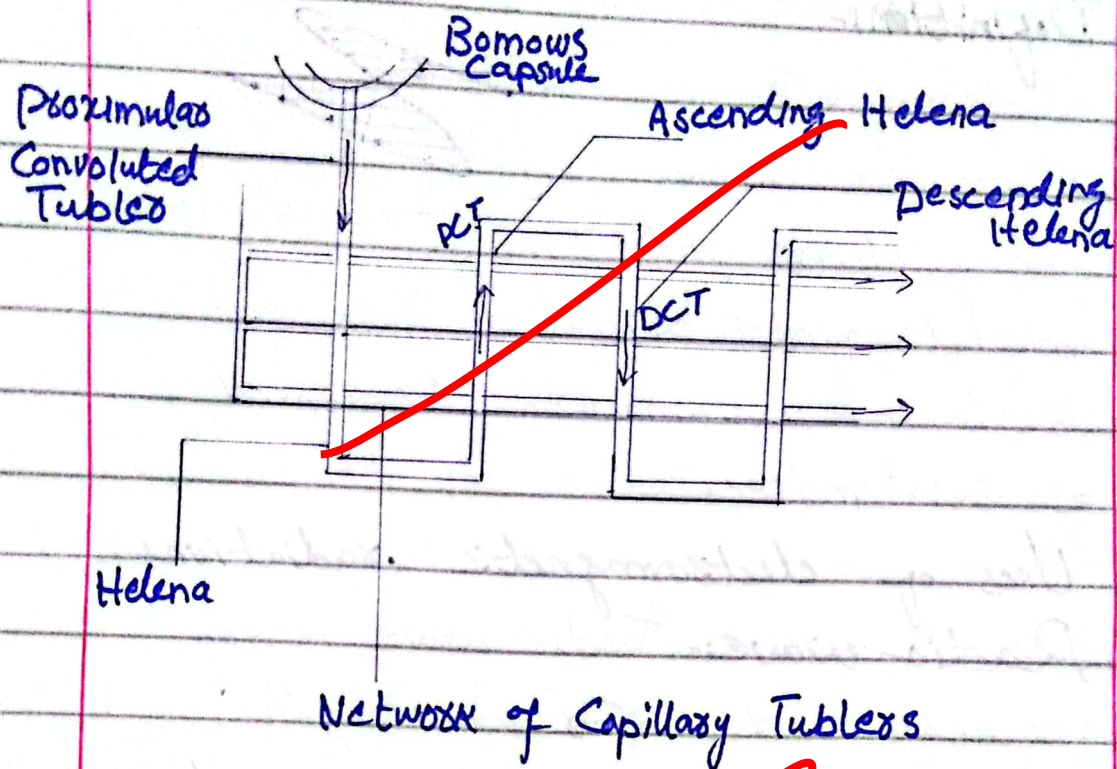 Bomows
Capsule
Proximular
Convoluted
Tubler
Ascending Helena
Descending
Helena
PCT
DCT
Helena
Network of Capillary Tublers